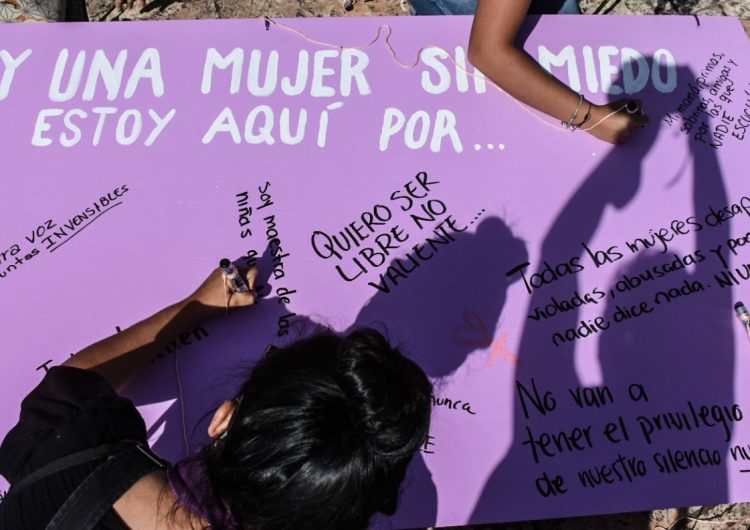 Y UNA MUJER SIN MIEDO
ESTOY AQUÍ POR...
Mi mamá, primas,
sobrinas, amigas y
por las que
NADIE
ESCUC
VOZ
INVENSIBLES
Soy maestra de los
niñas
QUIERO SER
LIBRE NO
VALIENTE...
Todas las mujeres desap
violadas, abusadas y
nadie dice nada. NIU
No van a
tener el privilegio
de nuestro silencio
nunca